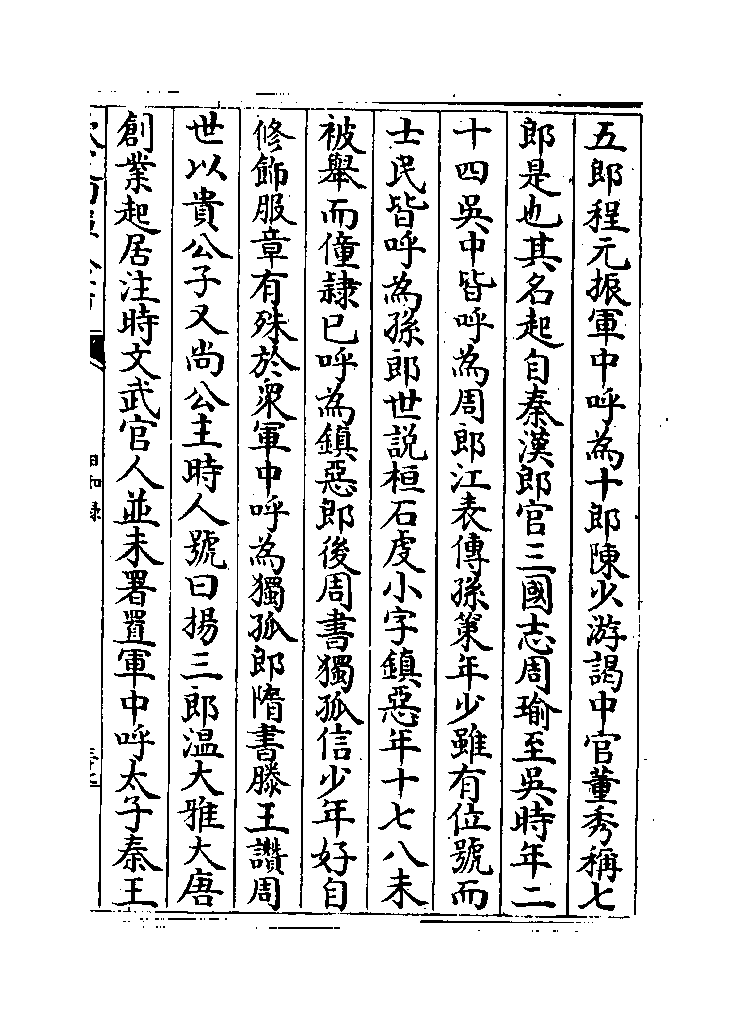 五郎程元振軍中呼為十郎陳少游謁中官董秀稱七
郎是也其名起自秦漢郎官三國志周瑜至吳時年二
十四吳中皆呼為周郎江表傳孫策年少雖有位號而
士民皆呼為孫郎世說桓石虔小字鎮惡年十七八未
被舉而僮隷已呼為鎮惡郎後周書獨孤信少年好自
修飾服章有殊於衆軍中呼為獨孤郎隋書滕王讚周
世以貴公子又尚公主時人號曰揚三郎温大雅大唐
創業起居注時文武官人並未署置軍中呼太子秦王
日知録